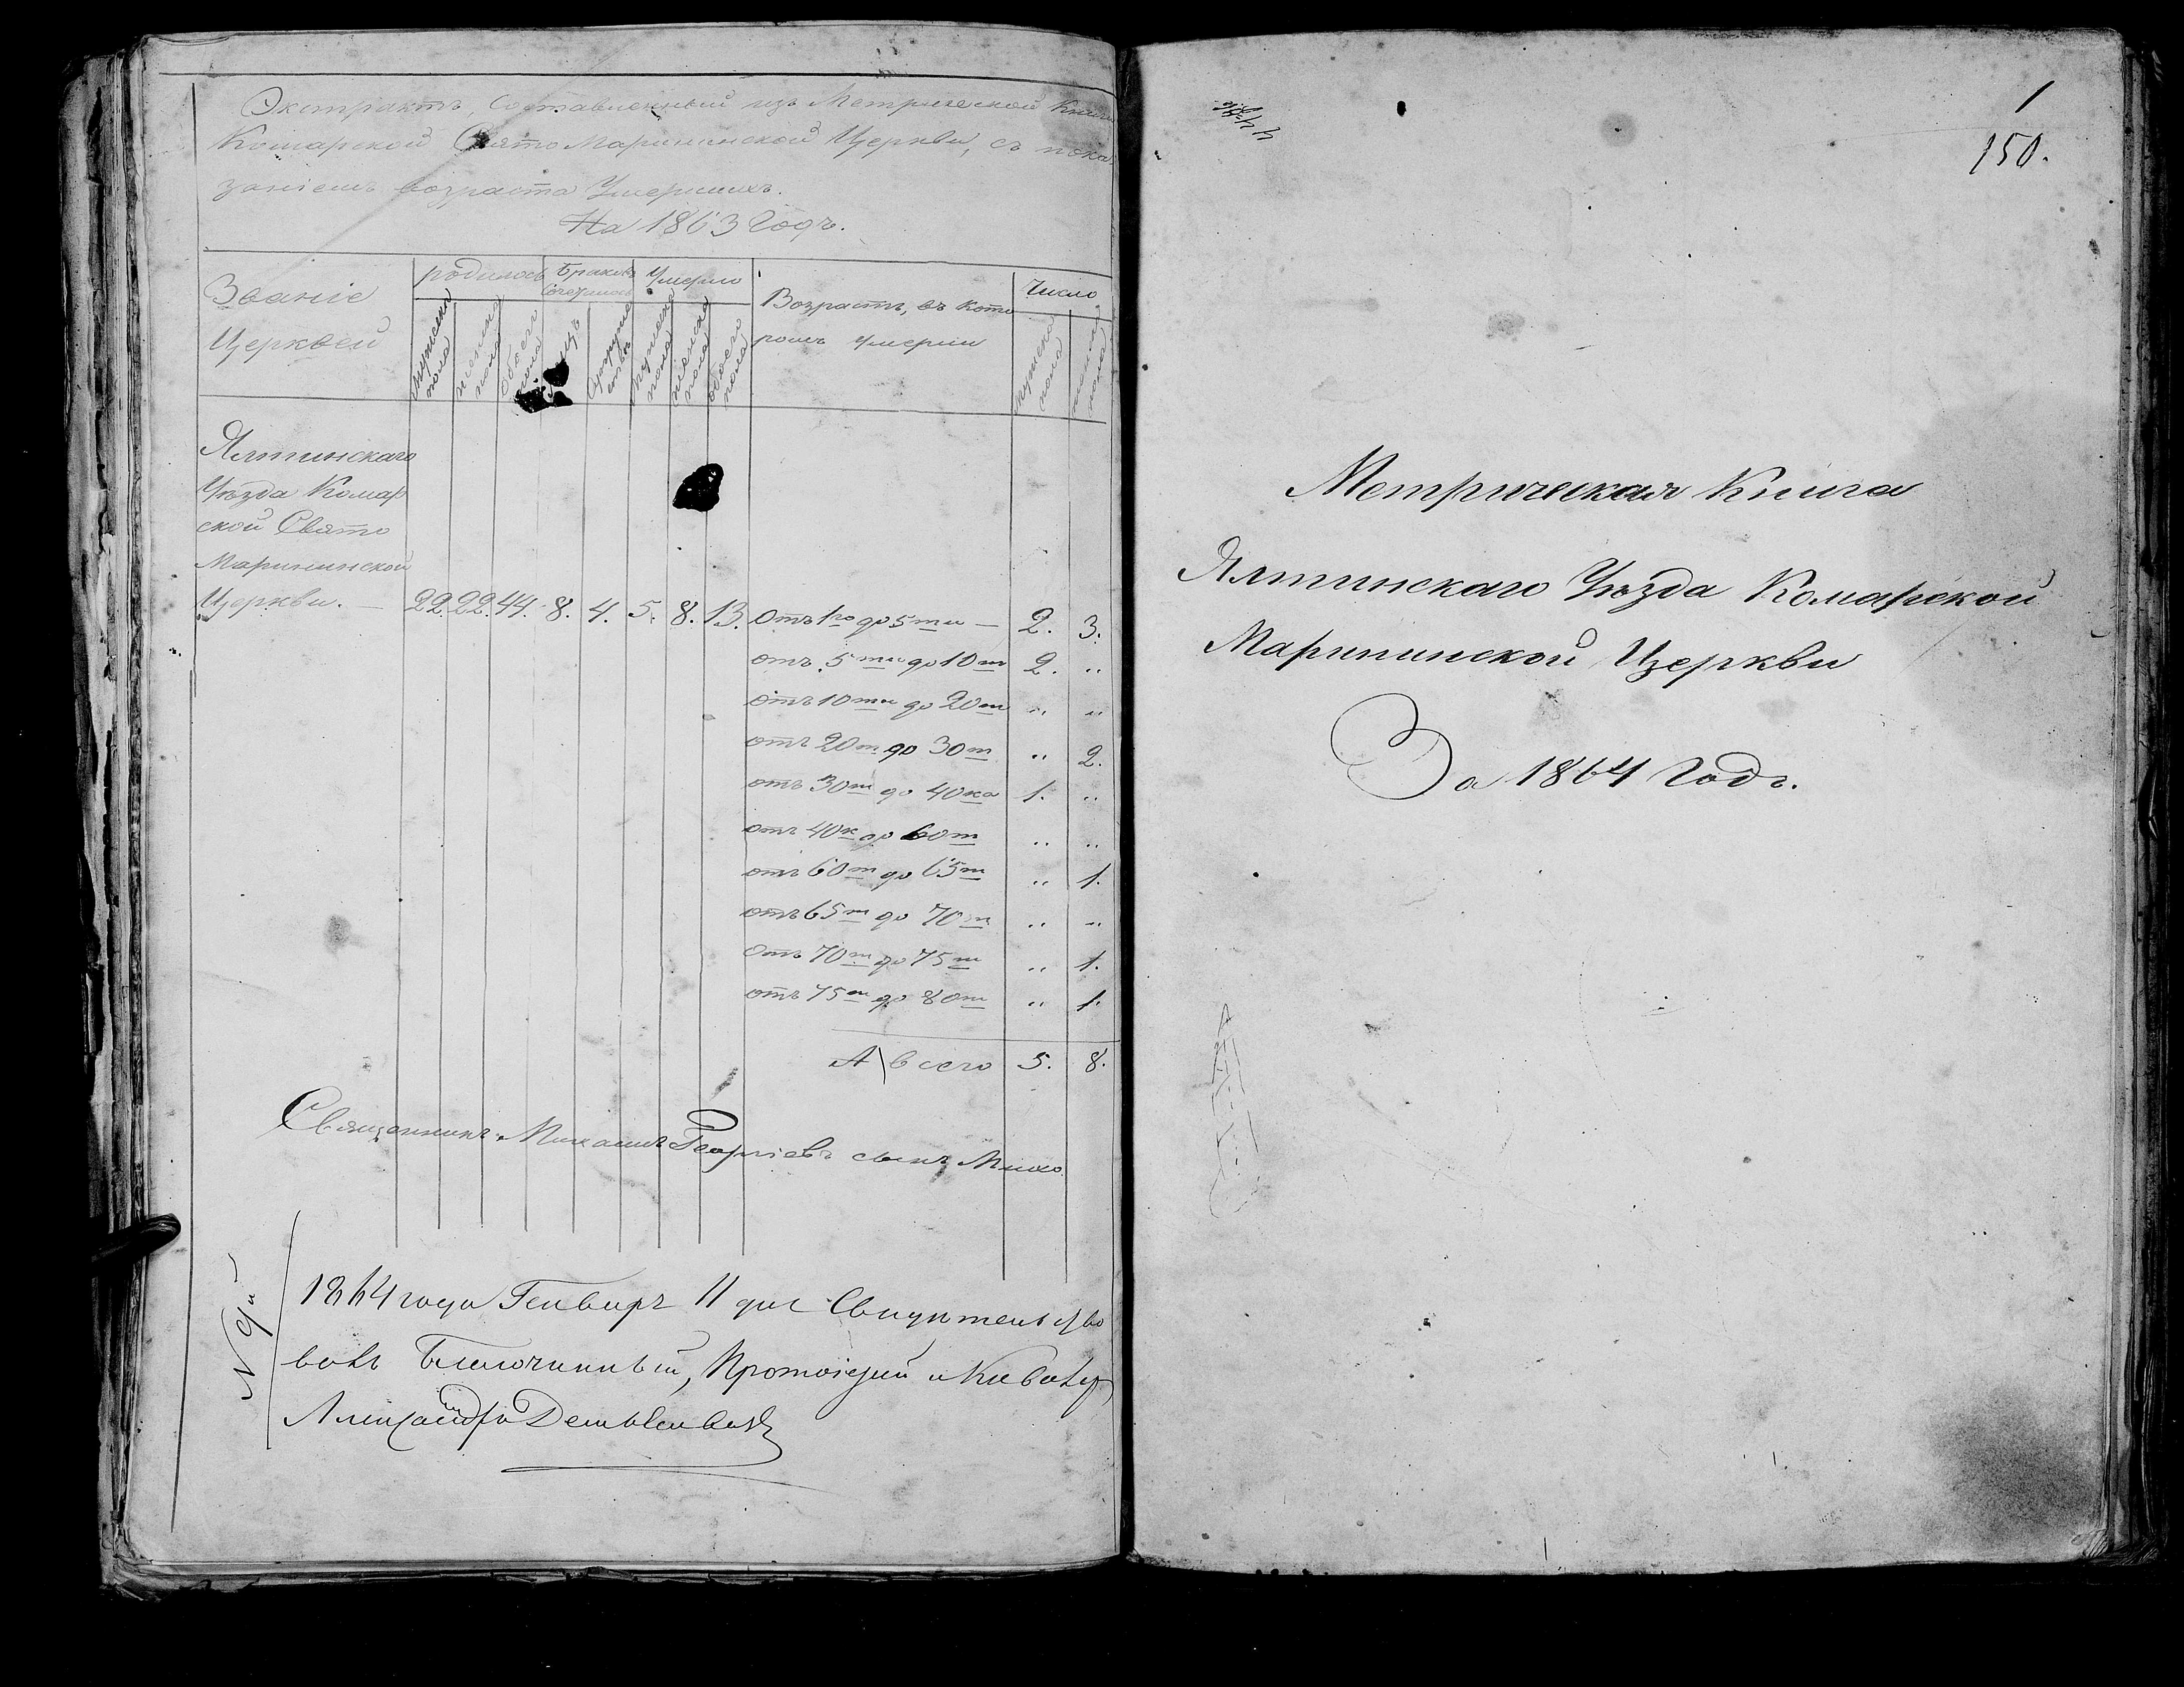 Экстрактъ, Составленный изъ Метрической Книги
Комарской Свято Марининской Церкви, съ пока
заніемъ возраста Умершихъ.
На 1863 Годъ.
Званіе
Церквей
родилось
мужеска пола
женска пола
обоего пола
Браковъ
Сочеталось
Супружествъ
Умерло
мужеска пола
женска пола
обоего пола
Возрастъ, въ кото
ромъ умерли
Число
мужеска пола
женска пола
Ялтинскаго
Уѣзда Комар
ской Свято
Марининской
Церкви. — 22. 22. 44. 8. 4. 5. 8. 13. Отъ 1го до 5ти — 2. 3.
отъ 5ти до 10т 2. „
отъ 10ти до 20т „ „
отъ 20т до 30т „ 2.
отъ 30т до 40ка 1. „
отъ 40к до 60т „ „
отъ 60т до 65т „ 1.
отъ 65т до 70т „ „
Отъ 70т до 75т „ 1.
отъ 75т до 80т „ 1.
А всего 5. 8.
Священникъ Михаилъ Георгіевъ сынъ
N 9й
1864 года Генваръ 11 дня Свидѣтельство
валъ Благочинный, Протоіерей и Кавалер
Александръ
1
150.
Метрическая Книга
Ялтинскаго Уѣзда Комарской
Марининской Церкви
За 1864 Годъ.